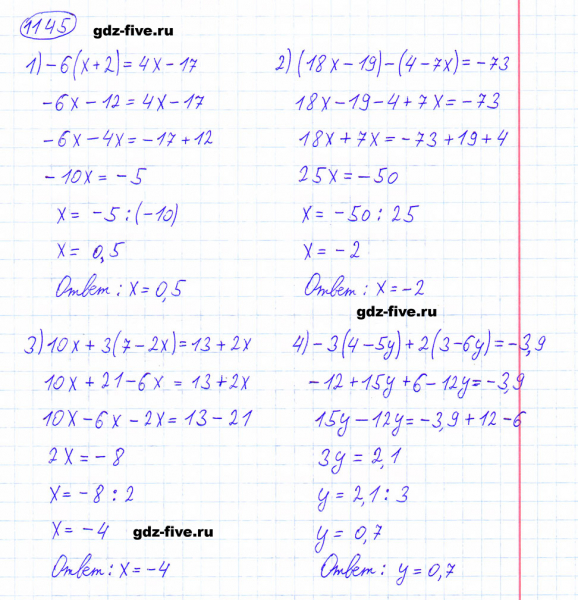 1145
gdz-five.ru
1) -6(x+2)=4x-17
-6x-12=4x-17
-6x-4x=-17+12
-10x=-5
x=-5:(-10)
x=0,5
Ответ: x=0,5
2) (18x-19)-(4-7x)=-73
18x-19-4+7x=-73
18x+7x=-73+19+4
25x=-50
x=-50:25
x=-2
Ответ: x=-2
gdz-five.ru
3) 10x+3(7-2x)=13+2x
10x+21-6x=13+2x
10x-6x-2x=13-21
2x=-8
x=-8:2
x=-4
gdz-five.ru
Ответ: x=-4
4) -3(4-5y)+2(3-6y)=-3,9
-12+15y+6-12y=-3,9
15y-12y=-3,9+12-6
3y=2,1
y=2,1:3
y=0,7
Ответ: y=0,7